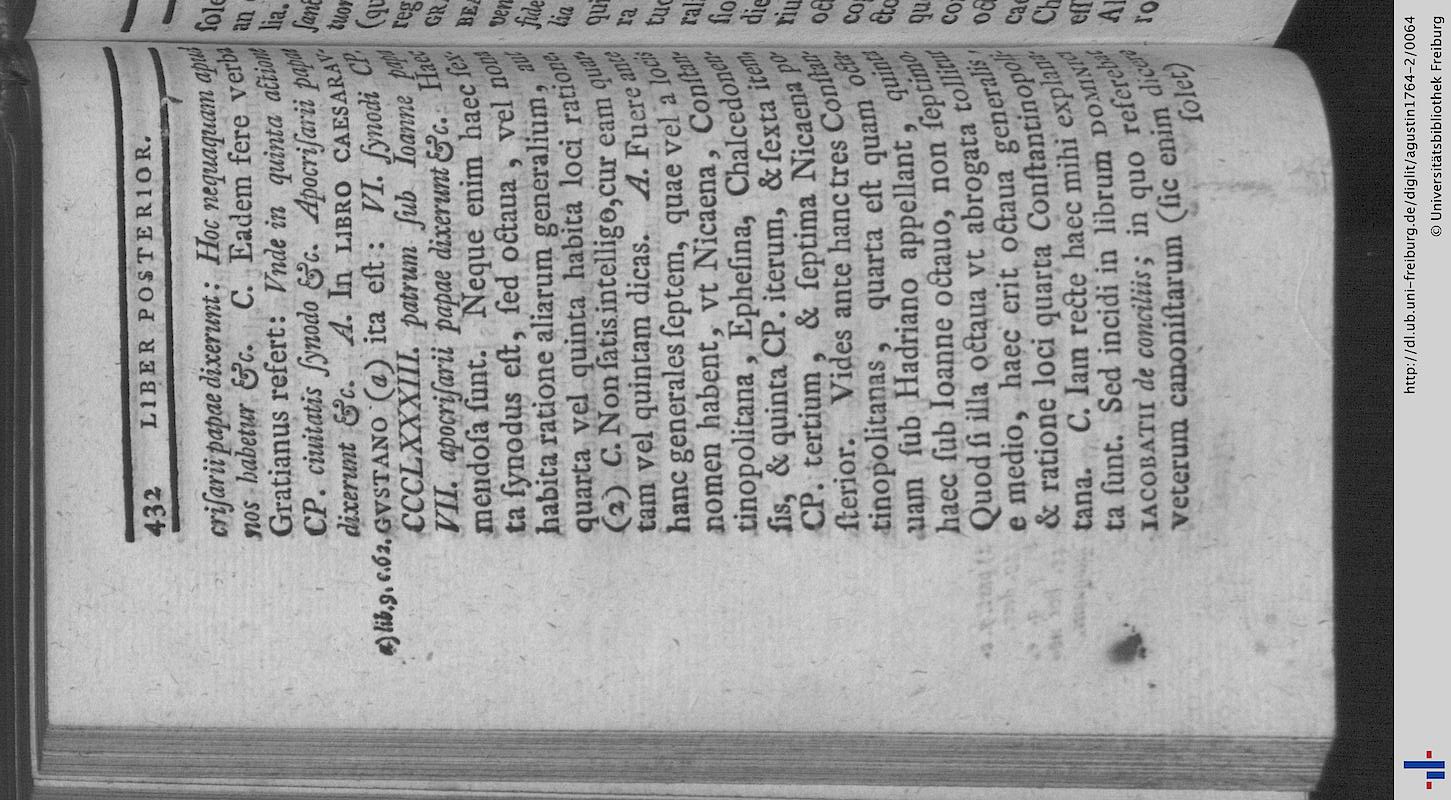 432 LIBER POSTERIOR.
criſarii papae dixerunt: Hoc nequaquam apud
nos habetur &c. C. Eadem fere verba
Gratianus refert: Vnde in quinta actione
CP. ciuitatis ſynodo &c. Apocriſarii papae
dixerunt &c. A. In LIBRO CAESARAV-
a) lib. 9. c. 62. GVSTANO (a) ita eſt: VI. ſynodi CP.
CCCLXXXIII. patrum ſub Ioanne papa
VII. apocriſarii papae dixerunt &c. Haec
mendoſa ſunt. Neque enim haec ſex-
ta ſynodus eſt, ſed octaua, vel nona
habita ratione aliarum generalium, aut
quarta vel quinta habita loci ratione.
(2) C. Non ſatis intelligo, cur eam quar-
tam vel quintam dicas. A. Fuere ante
hanc generales ſeptem, quae vel a locis
nomen habent, vt Nicaena, Conſtan-
tinopolitana, Epheſina, Chalcedonen-
ſis, & quinta CP. iterum, & ſexta item
CP. tertium, & ſeptima Nicaena po-
ſterior. Vides ante hanc tres Conſtan-
tinopolitanas, quarta eſt quam octa-
uam ſub Hadriano appellant, quinta
haec ſub Ioanne octauo, non ſeptimo.
Quod ſi illa octaua vt abrogata tollitur
e medio, haec erit octaua generalis,
& ratione loci quarta Conſtantinopoli-
tana. C. Iam recte haec mihi explana-
ta ſunt. Sed incidi in librum DOMINICI
IACOBATII de conciliis; in quo referebat
veterum canoniſtarum (ſic enim dicere
ſolet)
ſole
an
lia.
ſanc
tuor
(qu
reg
GR
BEA
ven
fide
lia
qui
ra
tuc
ral
ſio
die
riu
oct
cog
cto
qu
co
oc
cae
Ch
eſſ
Al
ro
http://dl.ub.uni-freiburg.de/diglit/agustin1764-2/0064
© Universitätsbibliothek Freiburg